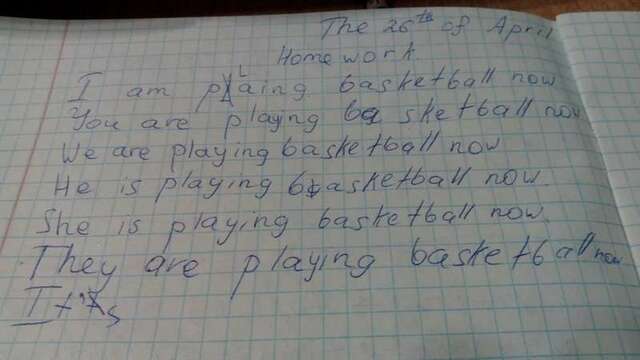 The 26th of April
Homework.
I am plaing basketball now
You are playng basketball now
We are playing basketball now
He is playing basketball now.
She is playing basketball now.
They are playing basketball now
It's